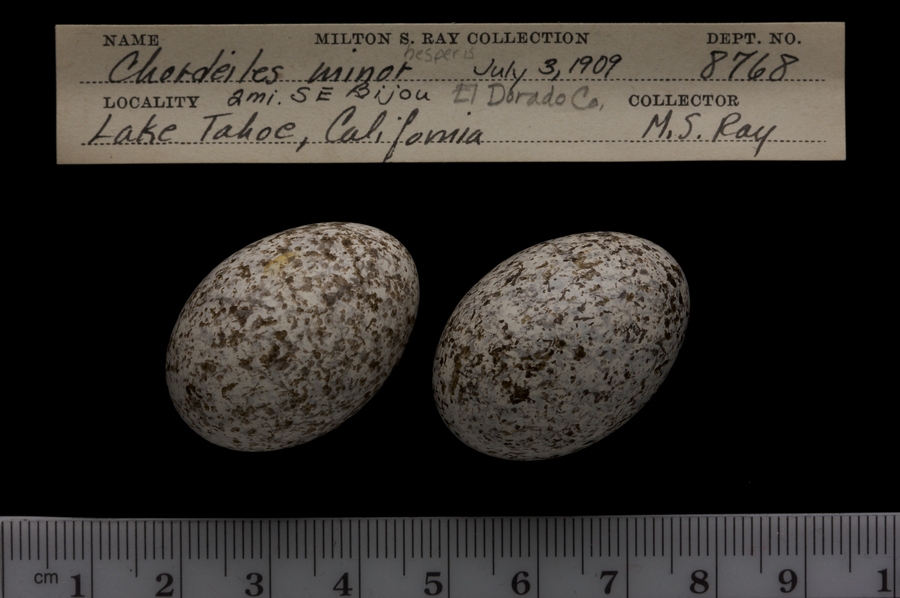 NAME MILTON S. RAY COLLECTION DEPT. NO.
hesperis
Chordeiles minor July 3, 1909 8768
LOCALITY 2 mi. SE Bijou El Dorado Co. COLLECTOR
Lake Tahoe, California M.S. Ray
cm 1 2 3 4 5 6 7 8 9 1